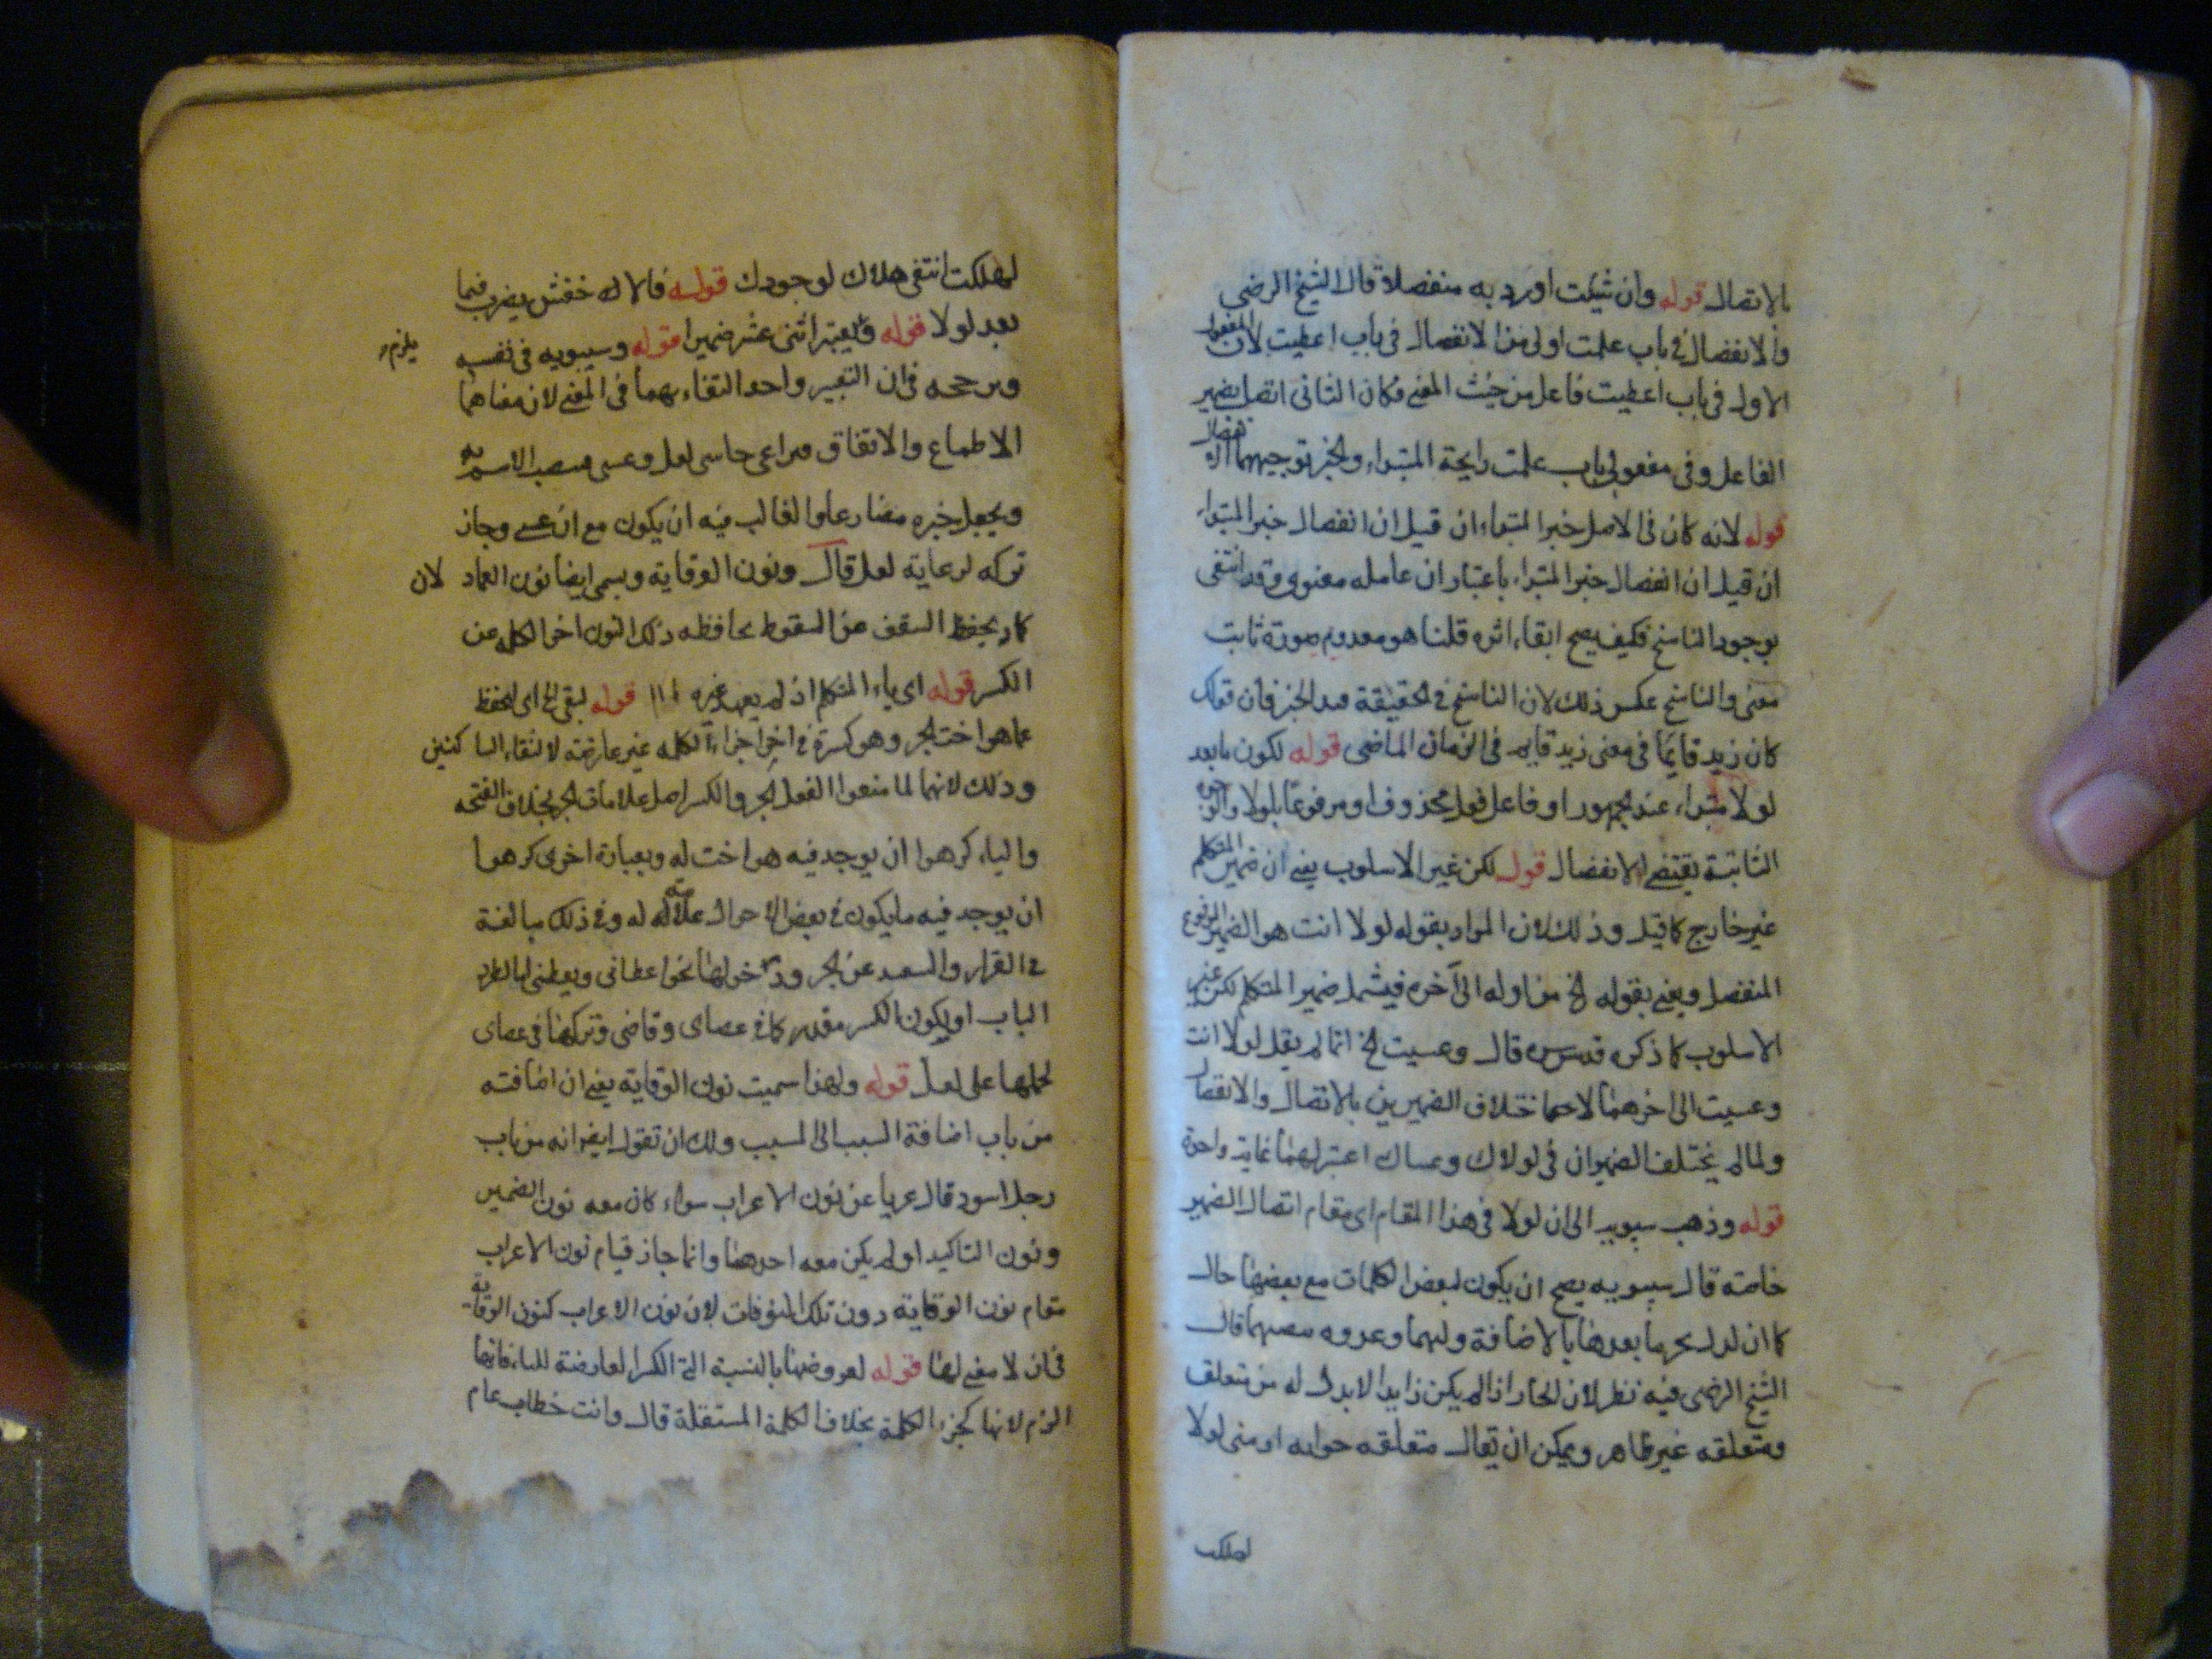 بالاتصال قوله وان شئت اورد به منفصلا قال الشيخ الرضي
والانفصال في باب علمت اولى من الانفصال في باب اعطيت لان المفعول
الاول في باب اعطيت فاعل من حيث المعنى فكان الثاني اتصل بضمير
الفاعل وفي مفعولي باب علمت رايحة المبتداء والخبر توجيهما
قوله لانه كان في الاصل خبر المبتداء ان قيل ان انفصال خبر المبتداء
ان قيل ان انفصال خبر المبتداء باعتبار ان عامله معنوي وقد انتفى
بوجود الناسخ فكيف يصح ابقاء اثره قلنا هو معدوم صورة ثابت
معنى والناسخ عكس ذلك لان الناسخ في الحقيقة الخبر فان قولك
كان زيد قايما في معنى زيد قايم في الزمان الماضي قوله لكون ما بعد
لولا مبتداء عند الجمهور او فاعل فعل محذوف او مرفوعا بلولا
الثابتة يقتضي الانفصال قوله لكن غير الاسلوب يعني ان ضمير المتكلم
غير خارج كما قيل وذلك لان المراد بقوله لولا انت هو الضمير المرفوع
المنفصل ويعني بقوله الخ من اوله الى آخره فيشمل ضمير المتكلم لكن غير
الاسلوب كما ذكره قدس سره قال وعسيت الخ انما لم يقل لولا انت
وعسيت الى اخرهما لاختلاف الضميرين بالاتصال والانفصال
ولما لم يختلف الضميران في لولاك وعساك اعتبر لهما غاية واحدة
قوله وذهب سيبويه الى ان لولا في هذا المقام اي مقام اتصال الضمير
خاصة قال سيبويه يصح ان يكون لبعض الكلمات مع بعضها حال
كما ان لدن يجر ما بعدها بالاضافة قال
الشيخ الرضي فيه نظر لان الجار اذا لم يكن زايدا لابد له من متعلق
ومتعلقه غير ظاهر ويمكن ان يقال متعلقه جوابه لولا
لهلكت
لهلكت انتفى هلاك لوجودك قوله فالاخفش يضرب فيما
بعد لولا قوله اثنى عشر ضميرا قوله وسيبويه في نفسه
يلزم
ويرجحه فان التغيير واحد التقاء بهما في المعنى لان معناهما
الاطماع والاتفاق لعل وعسى الاسم
ويجعل خبره مضارعا والغالب فيه ان يكون مع ان عسى وجاز
تركه لرعاية لعل قال ونون الوقاية ويسمى ايضا نون العماد لان
كما يحفظ السقف عن السقوط يحافظه ذلك النون اخر الكلمة عن
الكسر قوله اي ياء المتكلم اذ لم يعهد غيره قوله لبقي الخ اي ليحفظ
عما هو اخت الجر وهو كسرة في اخر اجزاء الكلمة غير عارضة لالتقاء الساكنين
وذلك لانهما لما منعوا الفعل الجر والكسر اصل علامات الجر بخلاف الفتحة
والياء كرهوا ان يوجد فيه هو اخت له وبعبارة اخرى كرهوا
ان يوجد فيه ما يكون في بعض الاحوال علامة له وفي ذلك مبالغة
في الفرار والبعد عن الجر ودخولها نحو اعطاني ويعطيني
الباب او لكون الكسر مقدر كما في عصاي وقاضي وتركها في عصاي
لحملها على لعل قوله ولهذا سميت نون الوقاية يعني ان اضافته
من باب اضافة السبب الى المسبب ولك ان تقول ايضا انه من باب
رجل اسود قال عريا عن نون الاعراب سواء كان معه نون الضمير
ونون التاكيد او لم يكن معه احدهما وانما جاز قيام نون الاعراب
مقام نون الوقاية دون تلك النونات لان نون الاعراب كنون الوقاية
في ان لا معنى لها قوله لعروضها بالنسبة الى الكسر العارضة للياء فانها
الزم لانها كجزء الكلمة بخلاف الكلمة المستقلة قال وانت خطاب عام